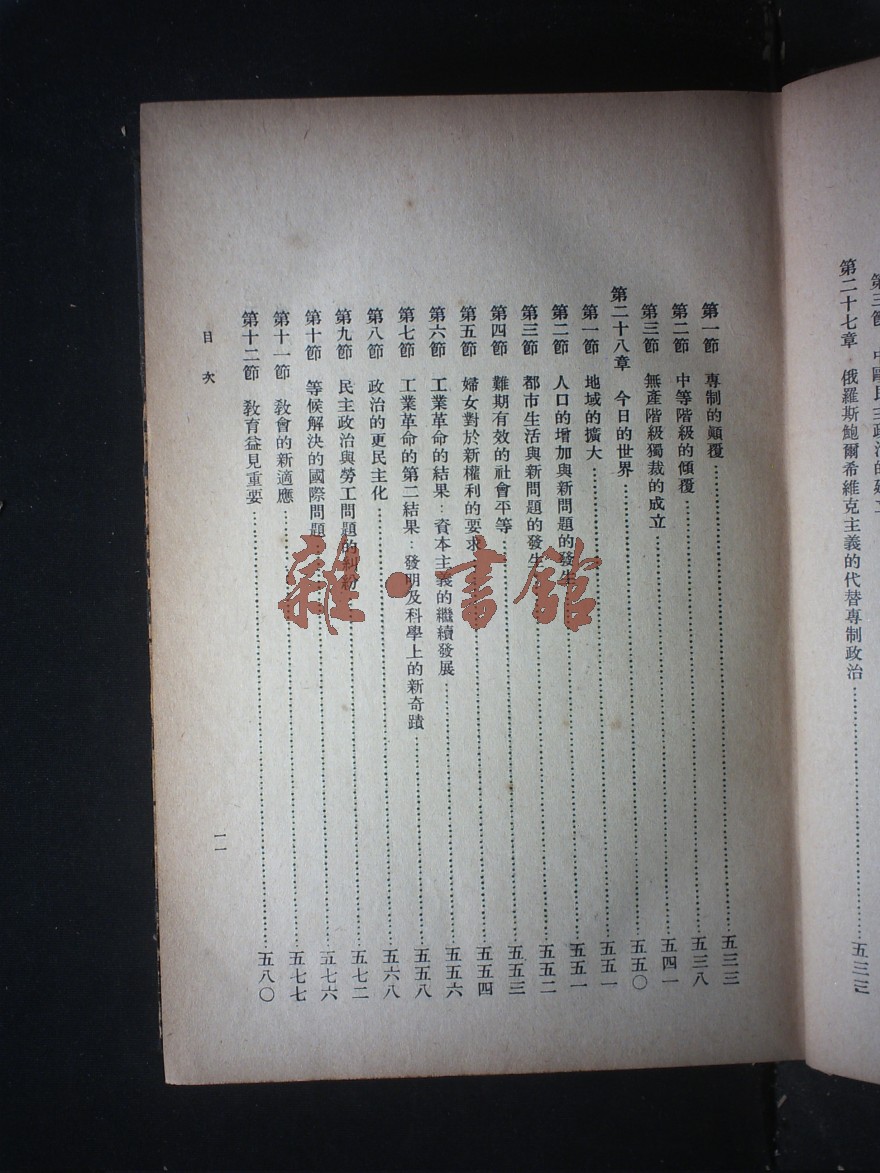 第三節 中歐民主政治的建立
第二十七章 俄羅斯鮑爾希維克主義的代替專制政治……五三三
第一節 專制的顛覆……五三三
第二節 中等階級的傾覆……五三八
第三節 無產階級獨裁的成立……五四一
第二十八章 今日的世界……五五〇
第一節 地域的擴大……五五一
第二節 人口的增加與新問題的發生……五五一
第三節 都市生活與新問題的發生……五五二
第四節 難期有效的社會平等……五五三
第五節 婦女對於新權利的要求……五五四
第六節 工業革命的結果：資本主義的繼續發展……五五六
第七節 工業革命的第二結果：發明及科學上的新奇蹟……五五八
第八節 政治的更民主化……五六八
第九節 民主政治與勞工問題的糾紛……五七二
第十節 等候解決的國際問題……五七六
第十一節 教會的新適應……五七七
第十二節 教育益見重要……五八〇
目次
一一
雜·書館